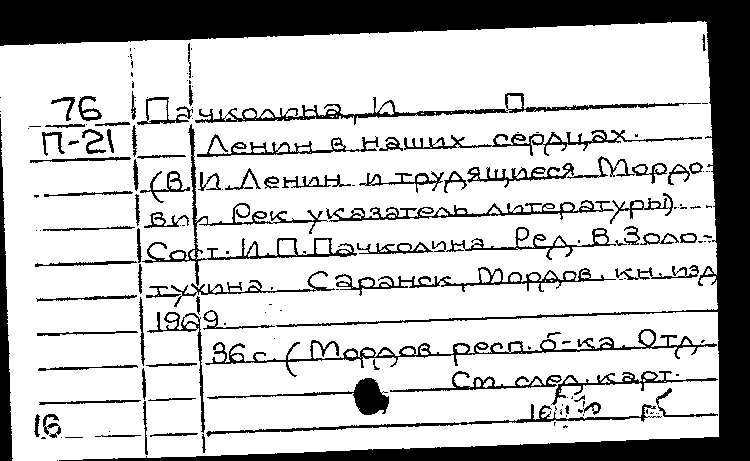 76 Пачколина, И П
П-21 Ленин в наших сердцах.
(В.И. Ленин и трудящиеся Мордо-
вии. Рек. указатель литературы).
Сост. И.П.Пачколина. Ред. В.Золо-
тухина. Саранск, Мордов. кн. изд
1969.
36 с. (Мордов. респ. б-ка. Отд.
См. след. карт.
16